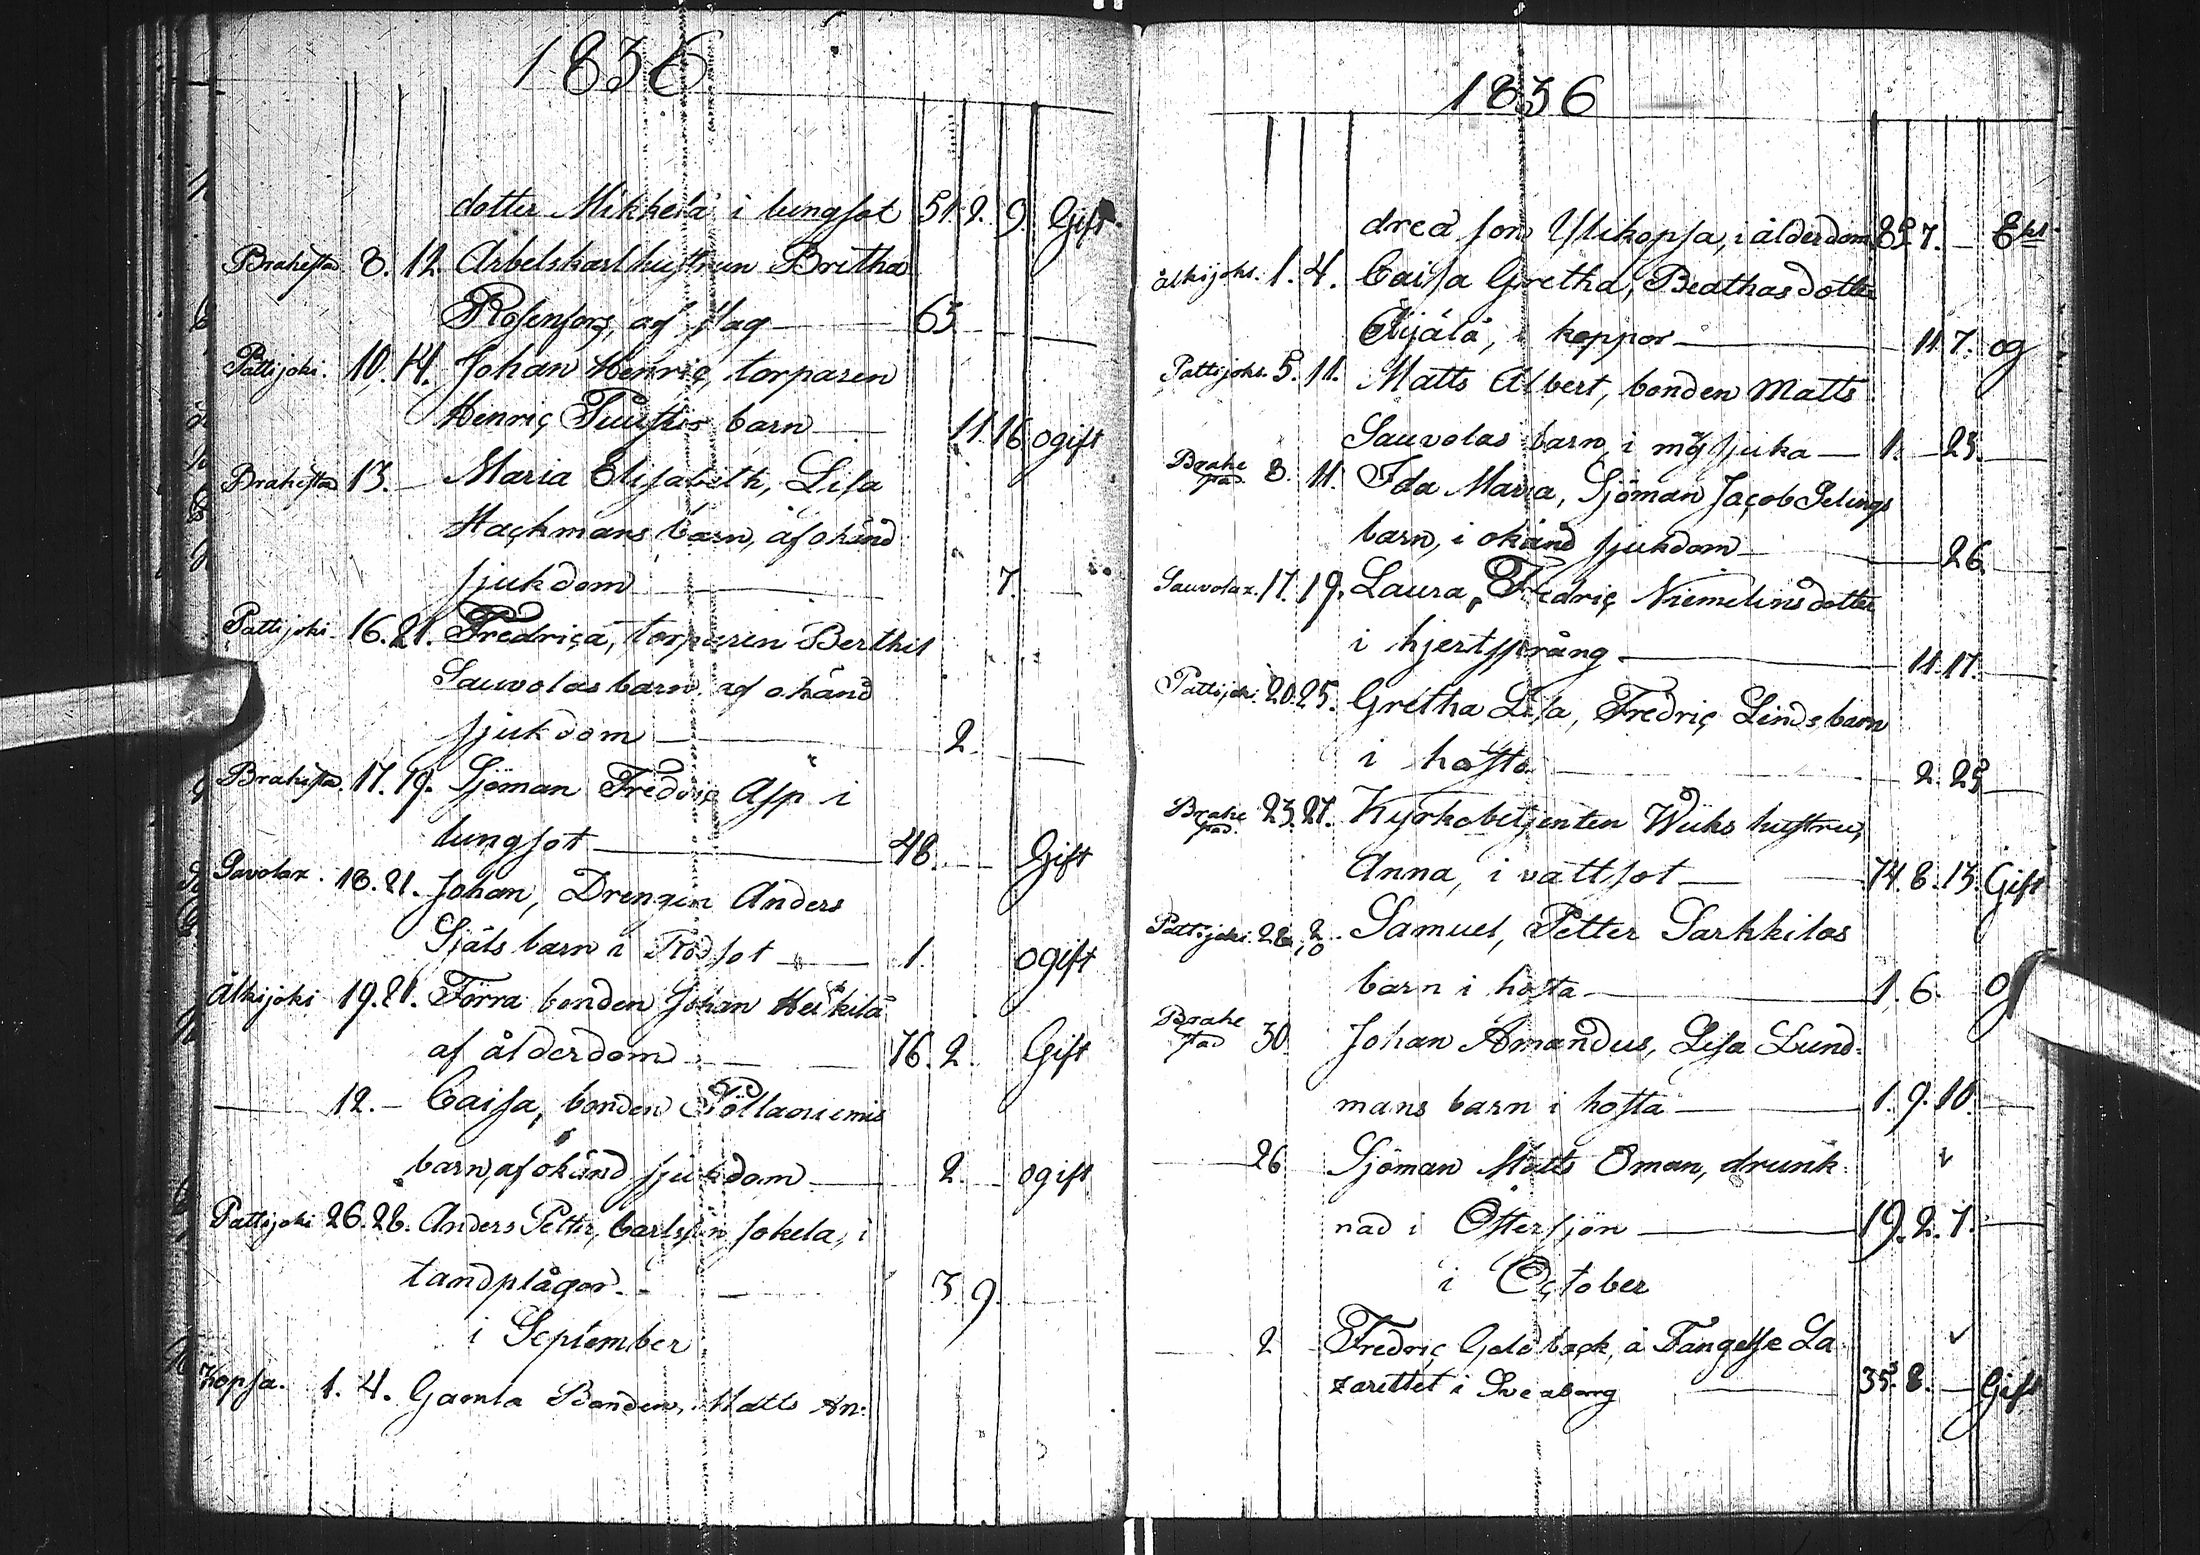 1836
dotter Mikkelä i lungsot 51. 2. 9. Gift
Brahesta 8. 12. Arbetskarlhustrun Britha
Rosenfors, af slag 63.
Pattijoki. 10. 14. Johan Henric, torparen
Henric Tuuskos barn 11. 16 ogift
Brahesta 13. Maria Elisabeth, Lisa
Hackmans barn, af okänd
sjukdom 7.
Pattijoki 16. 21. Fredrica, torparen Berthil
Sauvolas barn af okänd
sjukdom 2.
Brahesta. 17. 19. Sjöman Fredric Asp i
lungsot 48. Gift
Savolax. 18. 21. Johan, Drengen Anders
Själs barn i Rödsot 1. ogift
Alkijoki 19. 21. Förra bonden Johan Heikkilä
af ålderdom 76. 2. Gift
12. Caisa, bonden Pöllaniemis
barn, af okänd sjukdom 2. ogift
Pattijoki 26. 28. Anders Petter, Carlsson Jokela, i
tandplågor 3. 9.
i September
Kopsa. 1. 4. Gamla Bonden, Matts An:
1836
dreasson Ylikopsa, i ålderdom 85. 7. Enkl
Alkijoki. 1. 4. Caisa Gretha, Beathas dotter
Äijälä, i koppor 11. 7. og
Pattijoki. 5. 11. Matts Albert, bonden Matts
Sauvolas barn, i mässjuka 1. 23.
Brahe
stad. 8. 11. Ida Maria, Sjöman Jacob Gelings
barn, i okänd sjukdom 26.
Sauvolax. 17. 19. Laura, Fredric Niemelins dotter
i hjertsprång 11. 17.
Pattijoki. 20. 25. Gretha Lisa, Fredric Linds barn
i hosta 2. 25
Brahe
stad. 23. 27. Kyrkobetjenten Wiiks hustru,
Anna, i vattsot 74. 8. 13. Gift
Pattijoki. 28. 2/10. Samuel, Petter Sarkkilas
barn i hosta 1. 6. og
Brahe
stad 30. Johan Amandus, Lisa Lund:
mans barn i hosta 1. 9. 10.
26 Sjöman Matts Öman, drunk:
nad i Östersjön 19. 2. 7.
i October
2 Fredric Goldback, å Fängelse La
zarettet i Sveaborg 35. 8. Gift